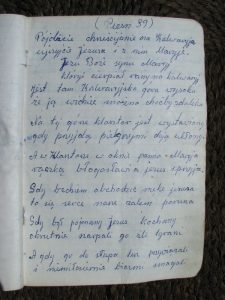 (Pieśń 39)
Pójdźcie chrześcijanie na Kalwaryją
ujrzycie Jezusa i z nim Maryję
Jezu Boże synu Maryj
któryś cierpiał rany na kalwaryj
jest tam Kalwaryjska góra wysoka
że ją widać można
Na tej górze klasztor jest wystawiony
gdy przyjdą pielgrzymi dają ukłony
A w Klasztorze w oknie panna Maryja
rączką błogosławi a jezus sprzyja
Gdy bractwem obchodzić męke jezusa
to się serce nam żalem porusza
Gdy był pojmany Jezus kochany
okrutnie szarpali go źli tyrani
A gdy go do słupa tam
i niemiłosiernie biczmi smagali